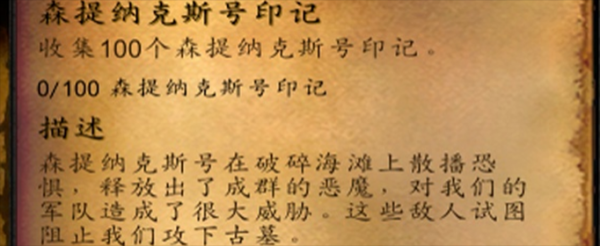 森提纳克斯号印记
收集100个森提纳克斯号印记。
0/100 森提纳克斯号印记
描述
森提纳克斯号在破碎海滩上散播恐
惧，释放出了成群的恶魔，对我们的
军队造成了很大威胁。这些敌人试图
阻止我们攻下古墓。